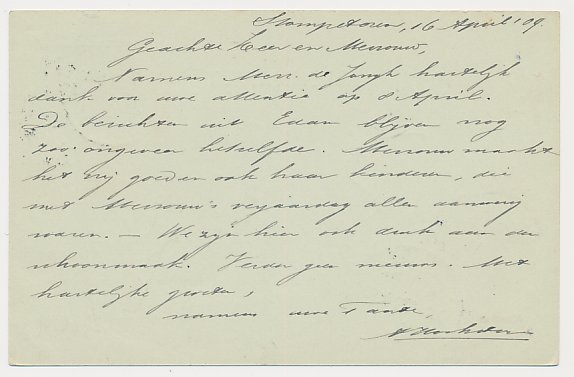 Stompetoren, 16 April '09.
Geachte Heer en Mevrouw,
Namens Mevr. de Jongh hartelijk
dank voor uwe attentie op 8 April.
De berichten uit Edam blijven nog
zoo ongeveer hetzelfde. Mevrouw maakt
het vrij goed en ook haar kinderen, die
met Mevrouw's verjaardag allen aanwezig
waren. — We zijn hier ook druk aan de
schoonmaak. Verder geen nieuws. Met
hartelijke groeten,
namens uwe Tante,